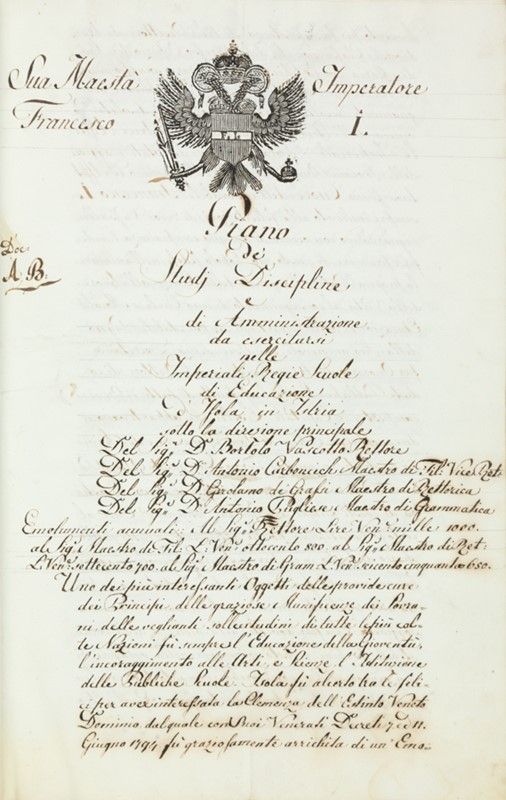 Sua Maestà Imperatore
Francesco I.
Piano
de
Studj Discipline,
e
di Amministrazione
da esercitarsi
nelle
Imperiali Regie Scuole
di Educazione
d'Isola in Istria
sotto la direzione principale
Del Sigr. D. Bortolo Vascotto Rettore
Del Sigr. D. Antonio Carboncich Maestro di Fil. Vice Ret.
Del Sigr. D. Girolamo de Grassi Maestro di Rettorica
Del Sigr. D. Antonio Pugliese Maestro di Grammatica
Doc.
A. B.
Emolumenti annuali: Al Sigr. Rettore Lire Vene. mille 1000.
al Sigr. Maestro di Fil. L. Vene. ottocento 800. al Sigr. Maestro di Ret:
L. Vene. settecento 700. al Sigr. Maestro di Gram. L. Vene. seicento cinquanta 650.
Uno dei più interessanti Oggetti delle provide cure
dei Principi, delle graziose Munificenze dei Sovra-
ni, delle veglianti sollecitudini di tutte le più col-
te Nazioni fù sempre l'Educazione della Gioventù,
l'incoraggimento alle Arti, e Scienze, l'Istituzione
delle Pubbliche Scuole. Isola fù al certo tra le feli-
ci per aver interessata la Clemenza dell'Estinto Veneto
Dominio, dal quale con Suoi Venerati Decreti 7 e 11.
Giugno 1794 fù graziosamente arrichita di un' Emo-